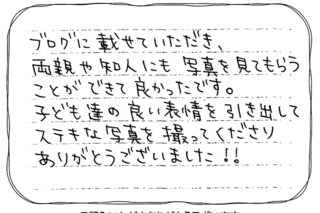 ブログに載せていただき、
両親や知人にも写真を見てもらう
ことができて良かったです。
子ども達の良い表情を引き出して
ステキな写真を撮ってくださり
ありがとうございました!!